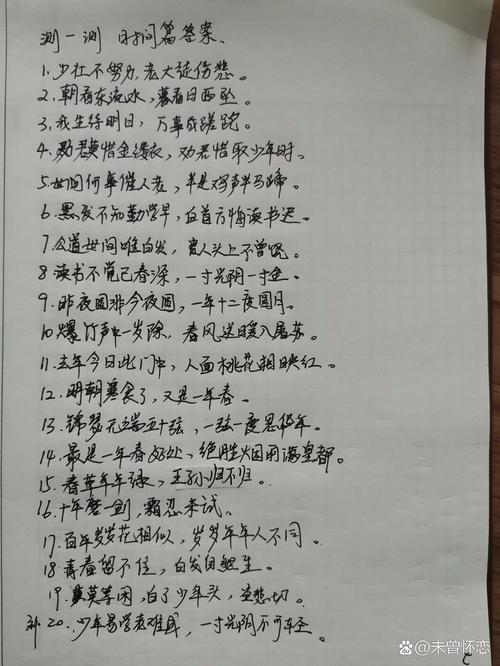 测一测 时间篇答案、
1.少壮不努力,老大徒伤悲。
2.朝看东流水,暮看日西坠。
3.我生待明日,万事成蹉跎。
4.劝君莫惜金缕衣,劝君惜取少年时。
5.世间何事催人老,半是鸡声半马蹄。
6.黑发不知勤学早,白首方悔读书迟。
7.公道世间唯白发,贵人头上不曾饶。
8.读书不觉已春深,一寸光阴一寸金。
9.昨夜圆非今夜圆,一年十二度圆月。
10.爆竹声中一岁除,春风送暖入屠苏。
11.去年今日此门中,人面桃花相映红。
12.明朝寒食了,又是一年春。
13.锦瑟无端五十弦,一弦一度思华年。
14.最是一年春好处,绝胜烟柳满皇都。
15.春草年年绿,王孙归不归。
16.十年磨一剑,霜忍未试。
17.百年岁岁花相似,岁岁年年人不同。
18.青春留不住,白发自然生。
19.莫等闲,白了少年头,空悲切。
补20.少年易学老难成,一寸光阴不可轻。
@未曾怀恋